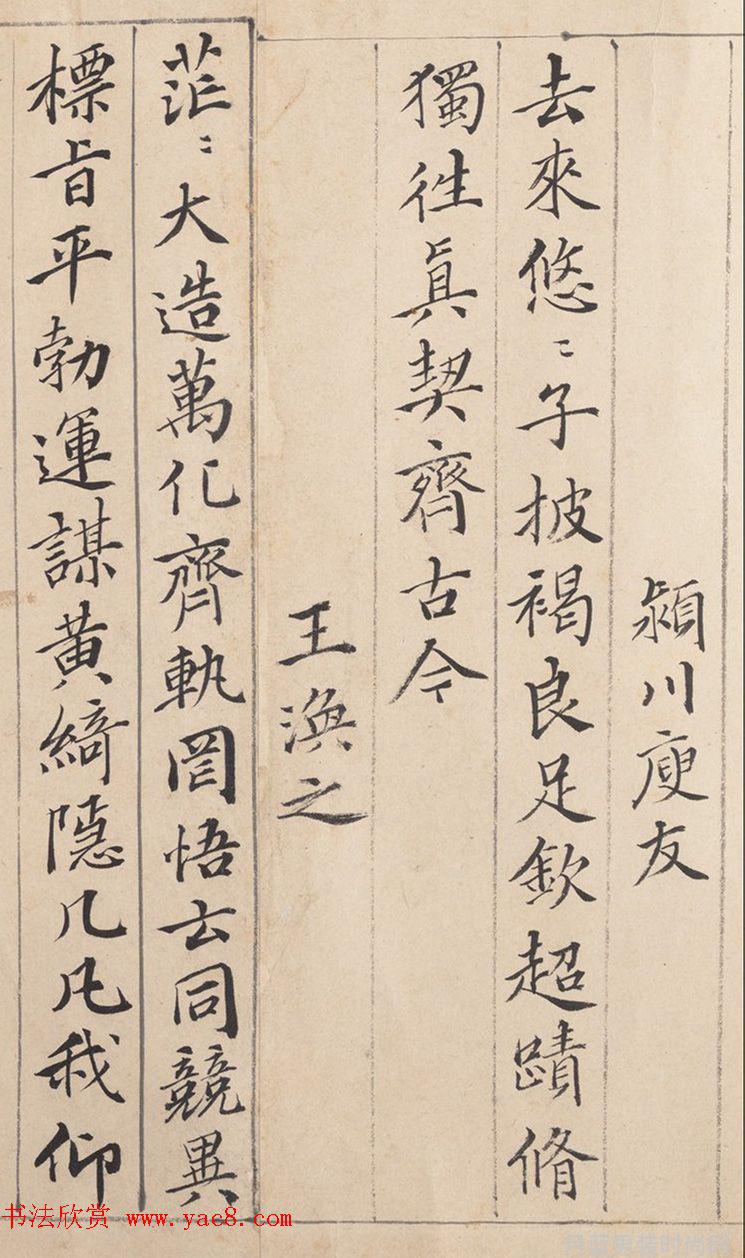 潁川庾友
去來悠〻子披褐良足欽超蹟脩
獨徃眞契齊古今
王渙之
茫〻大造萬化齊軌罔悟玄同競異
標旨平勃運謀黃綺隱几凡我仰
书法欣赏 www.yac8.com